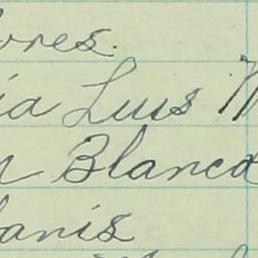 ores.
ia Luis
Blanca
anis